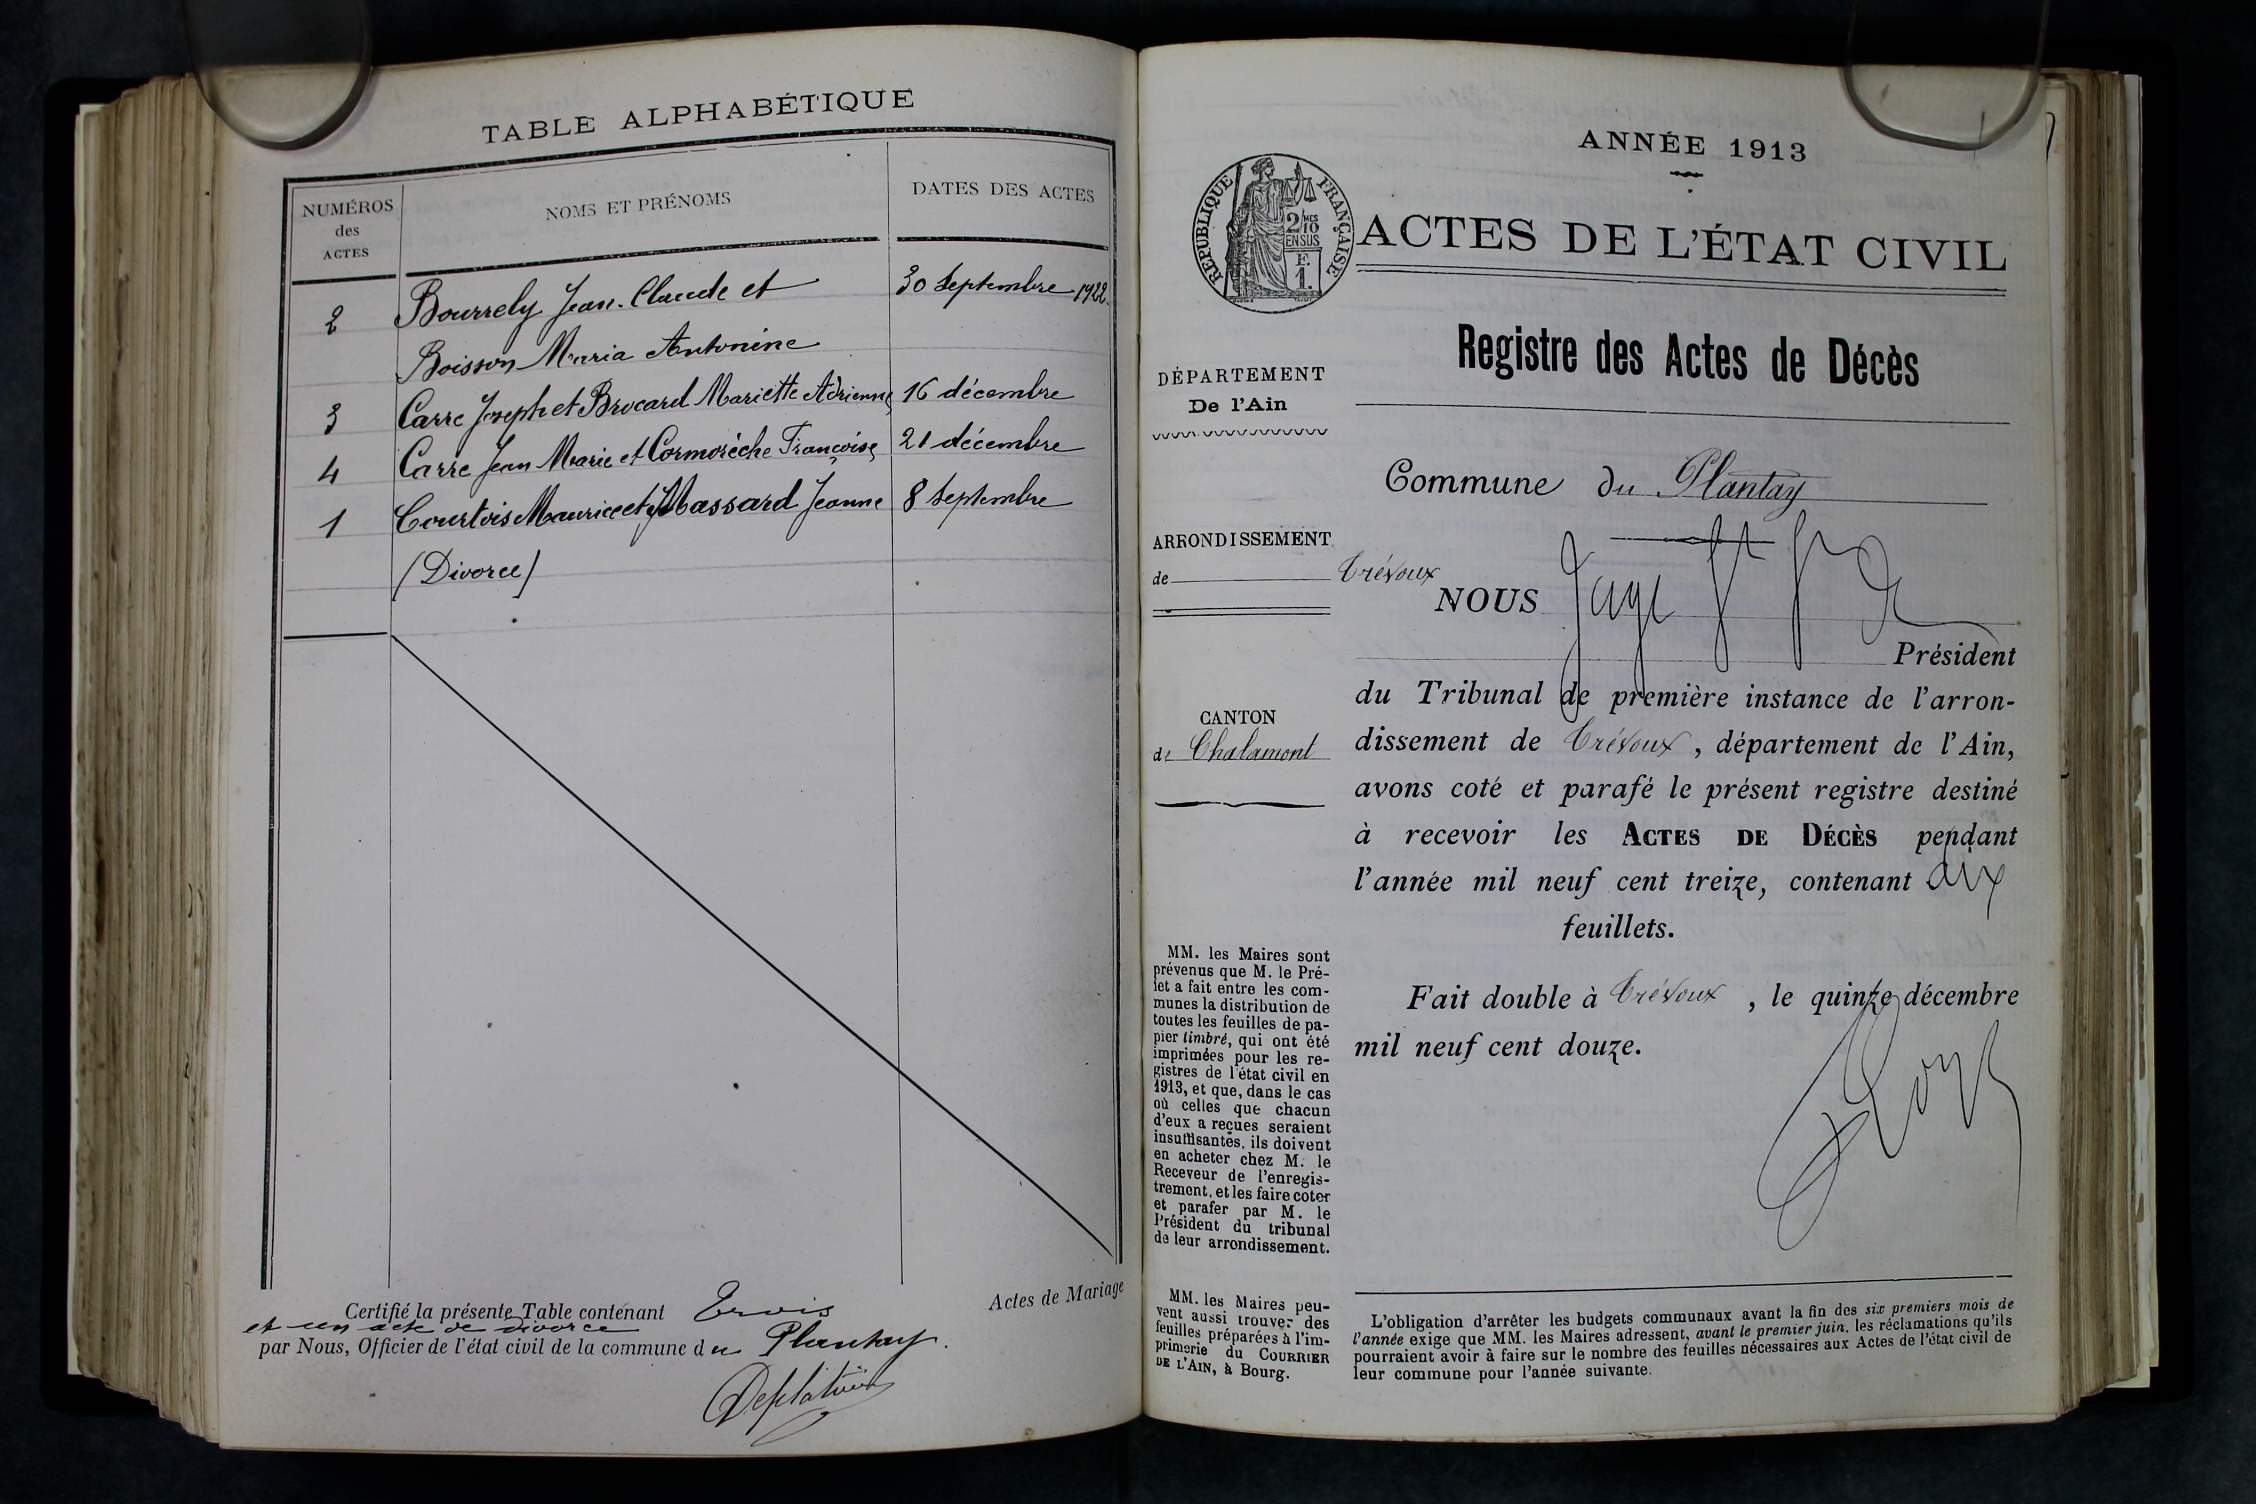 TABLE ALPHABÉTIQUE
NUMÉROS
des
ACTES
NOMS ET PRÉNOMS
DATES DES ACTES
2 Bourrely Jean-Claude et 30 Septembre 1922
Boisson Maria Antonine
3 Carre Joseph et Brocard Mariette Adrienne 16 décembre
4 Carre Jean Marie et Cormorèche Françoise 21 décembre
1 Courtois Maurice et Massard Jeanne 8 Septembre
(Divorce)
Certifié la présente Table contenant Trois Actes de Mariage
et un acte de divorce
par Nous, Officier de l'état civil de la commune du Plantay.
ANNÉE 1913
RÉPUBLIQUE FRANÇAISE
2/10
MES
EN SUS
F.
1.
ACTES DE L'ÉTAT CIVIL
Registre des Actes de Décès
DÉPARTEMENT
De l'Ain
Commune du Plantay
ARRONDISSEMENT
de Trévoux
NOUS
Président
du Tribunal de première instance de l'arron-
dissement de Trévoux, département de l'Ain,
avons coté et parafé le présent registre destiné
à recevoir les ACTES DE DÉCÈS pendant
l'année mil neuf cent treize, contenant dix
feuillets.
Fait double à Trévoux, le quinze décembre
mil neuf cent douze.
CANTON
de Chalamont
MM. les Maires sont
prévenus que M. le Pré-
fet a fait entre les com-
munes la distribution de
toutes les feuilles de pa-
pier timbré, qui ont été
imprimées pour les re-
gistres de l'état civil en
1913, et que, dans le cas
où celles que chacun
d'eux a reçues seraient
insuffisantes, ils doivent
en acheter chez M. le
Receveur de l'enregis-
trement, et les faire coter
et parafer par M. le
Président du tribunal
de leur arrondissement.
MM. les Maires peu-
vent aussi trouver des
feuilles préparées à l'im-
primerie du COURRIER
DE L'AIN, à Bourg.
L'obligation d'arrêter les budgets communaux avant la fin des six premiers mois de
l'année exige que MM. les Maires adressent, avant le premier juin, les réclamations qu'ils
pourraient avoir à faire sur le nombre des feuilles nécessaires aux Actes de l'état civil de
leur commune pour l'année suivante.